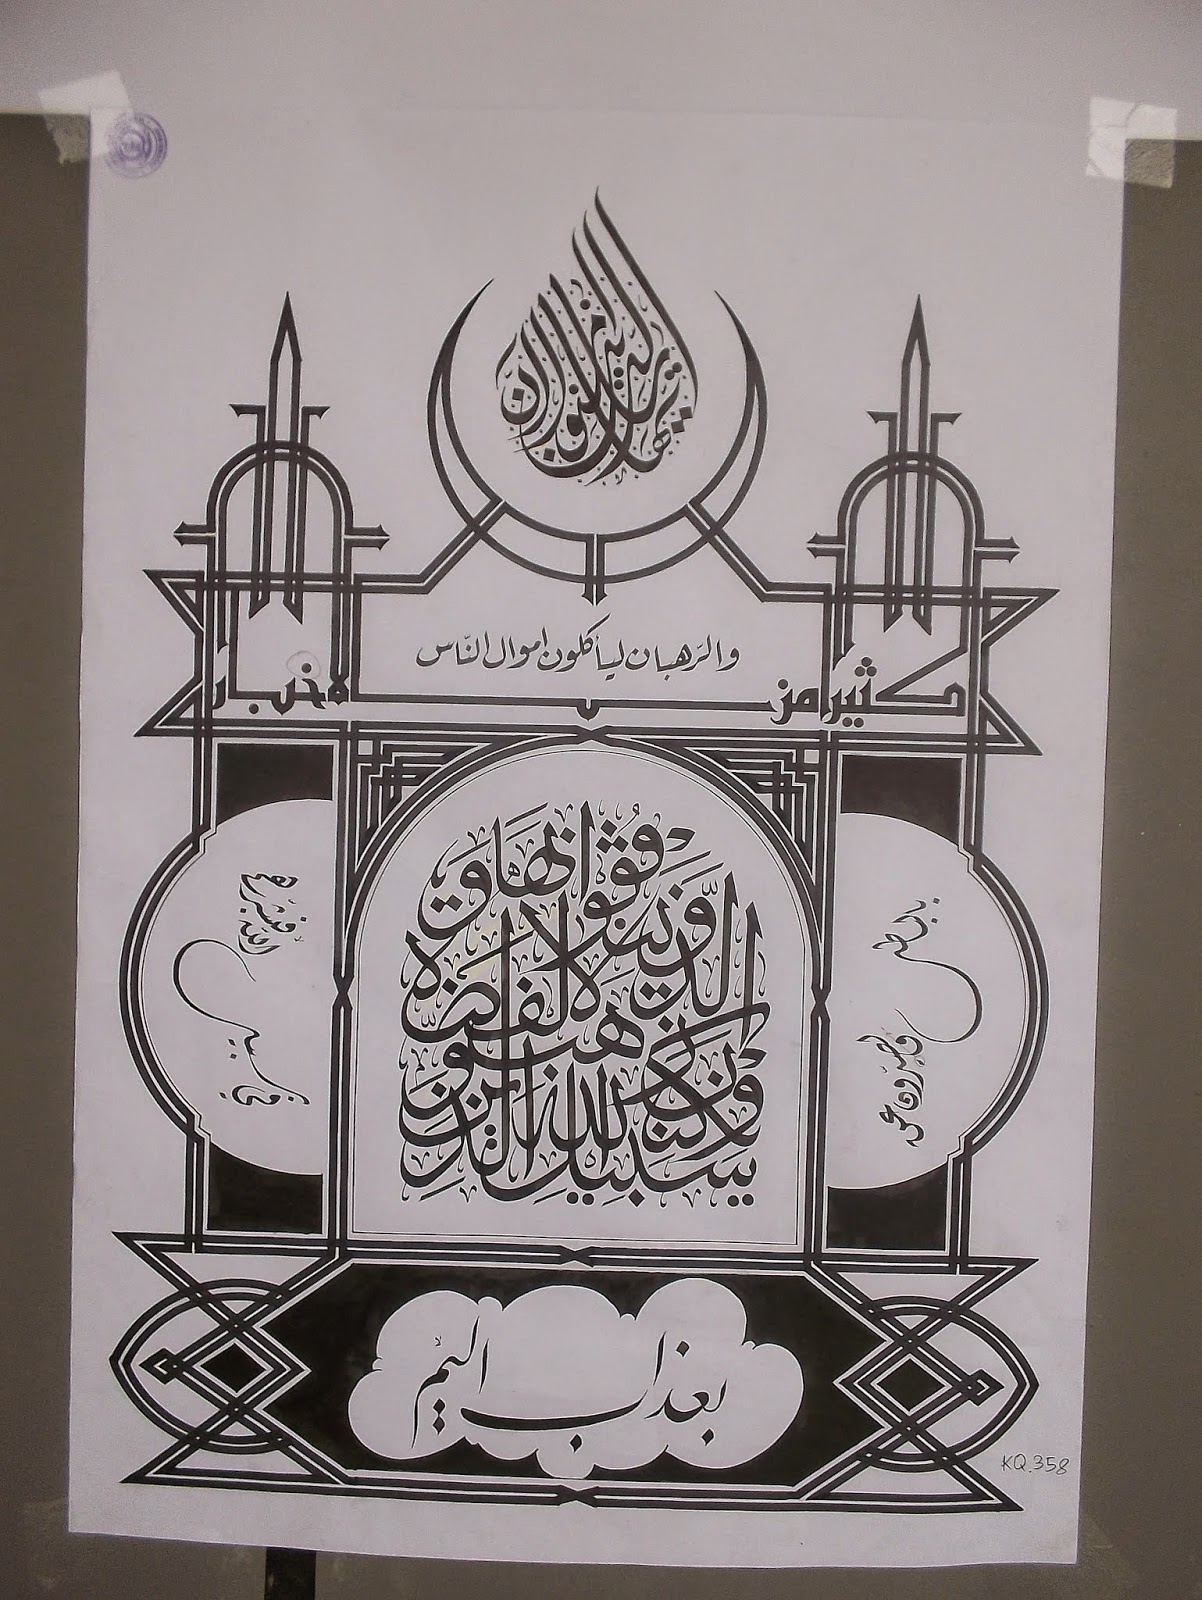 يايها الذين امنوا ان
كثيرا من الاخبار
والرهبان ليأكلون اموال الناس
بالباطل ويصدون عن
سبيل الله والذين يكنزون الذهب والفضة ولا ينفقونها
في سبيل الله فبشرهم
بعذاب اليم
KQ.358